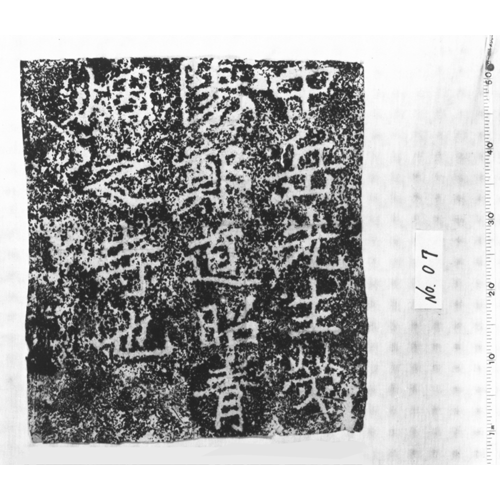 中岳先生熒
陽鄭道昭青
烟之寺也
No. 07
10
20
30
40
50